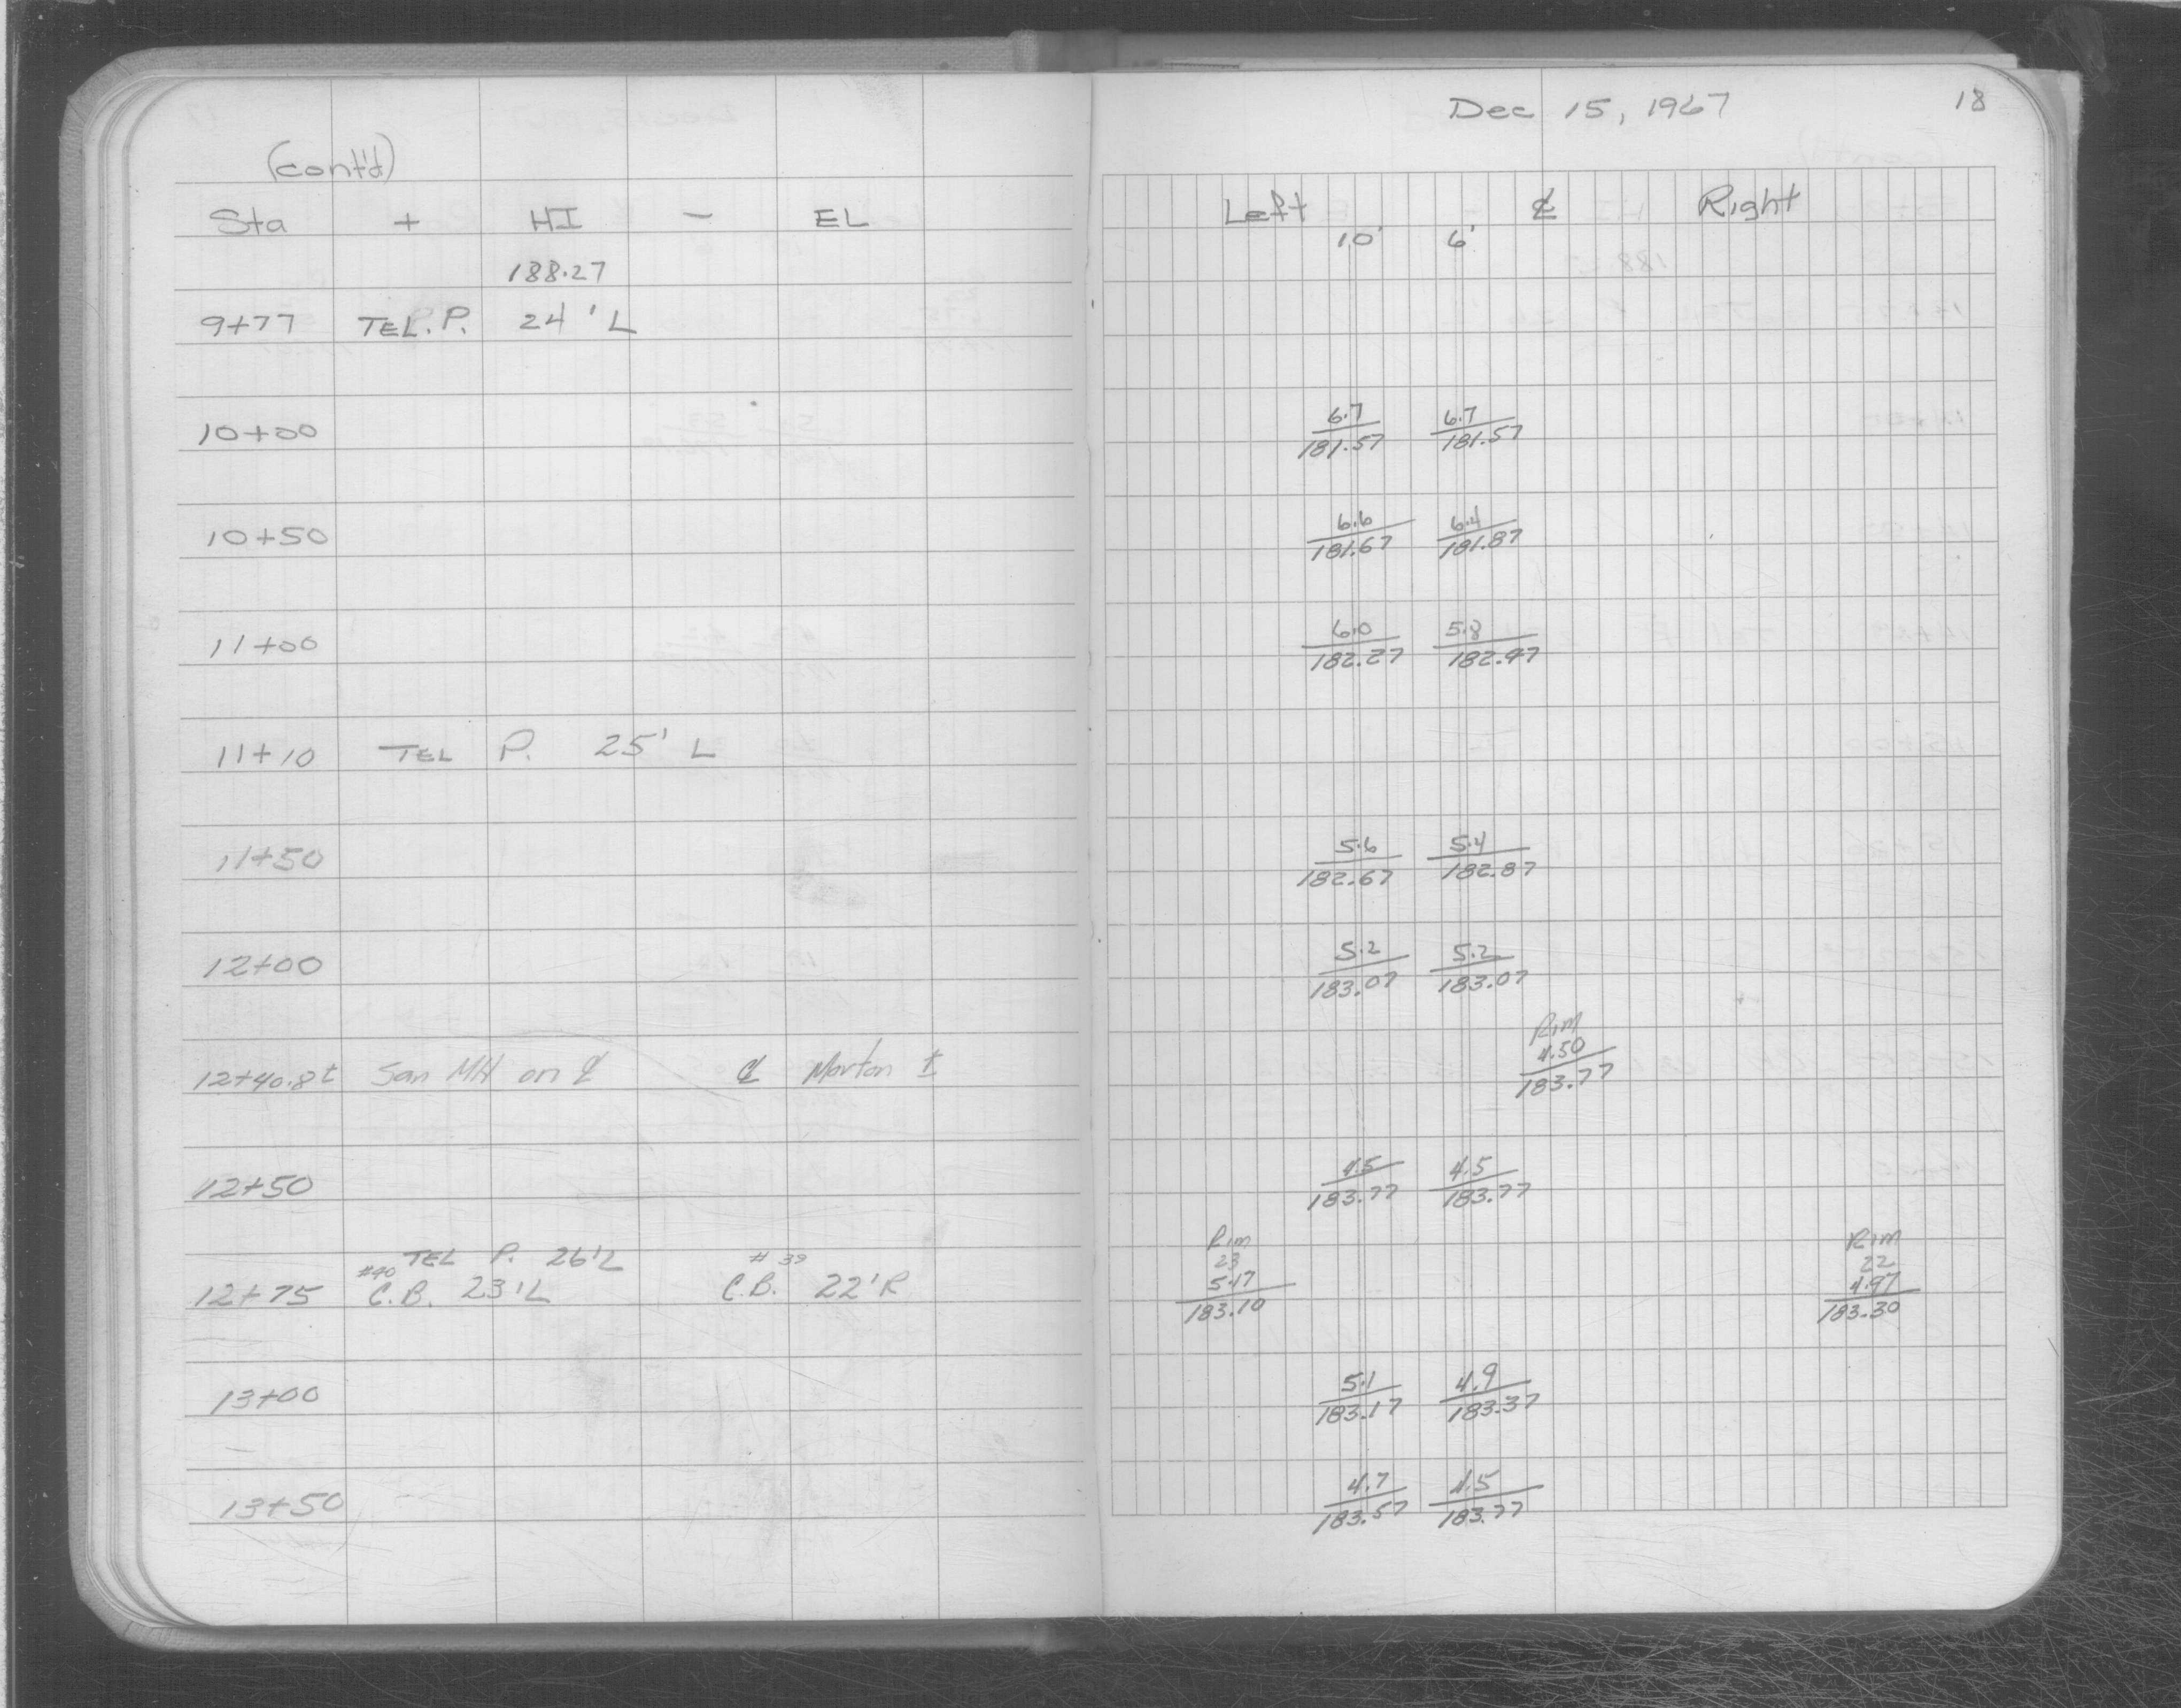 Dec 15, 1967 18
(cont'd)
Sta + HI - EL Left ℄ Right
10' 6'
188.27
9+77 TEL. P. 24' L
6.7 6.7
10+00 181.57 181.57
6.6 6.4
10+50 181.67 181.87
6.0 5.8
11+00 182.27 182.47
11+10 TEL P. 25' L
5.6 5.4
11+50 182.67 182.87
5.2 5.2
12+00 183.07 183.07
Rim
4.50
12+40.8± San MH on ℄ ℄ Morton ± 183.77
4.5 4.5
12+50 183.77 183.77
Rim Rim
TEL P. 26'L 23 22
#40 #39 5.17 4.97
12+75 C.B. 23'L C.B. 22'R 183.10 183.30
5.1 4.9
13+00 183.17 183.37
4.7 4.5
13+50 183.57 183.77